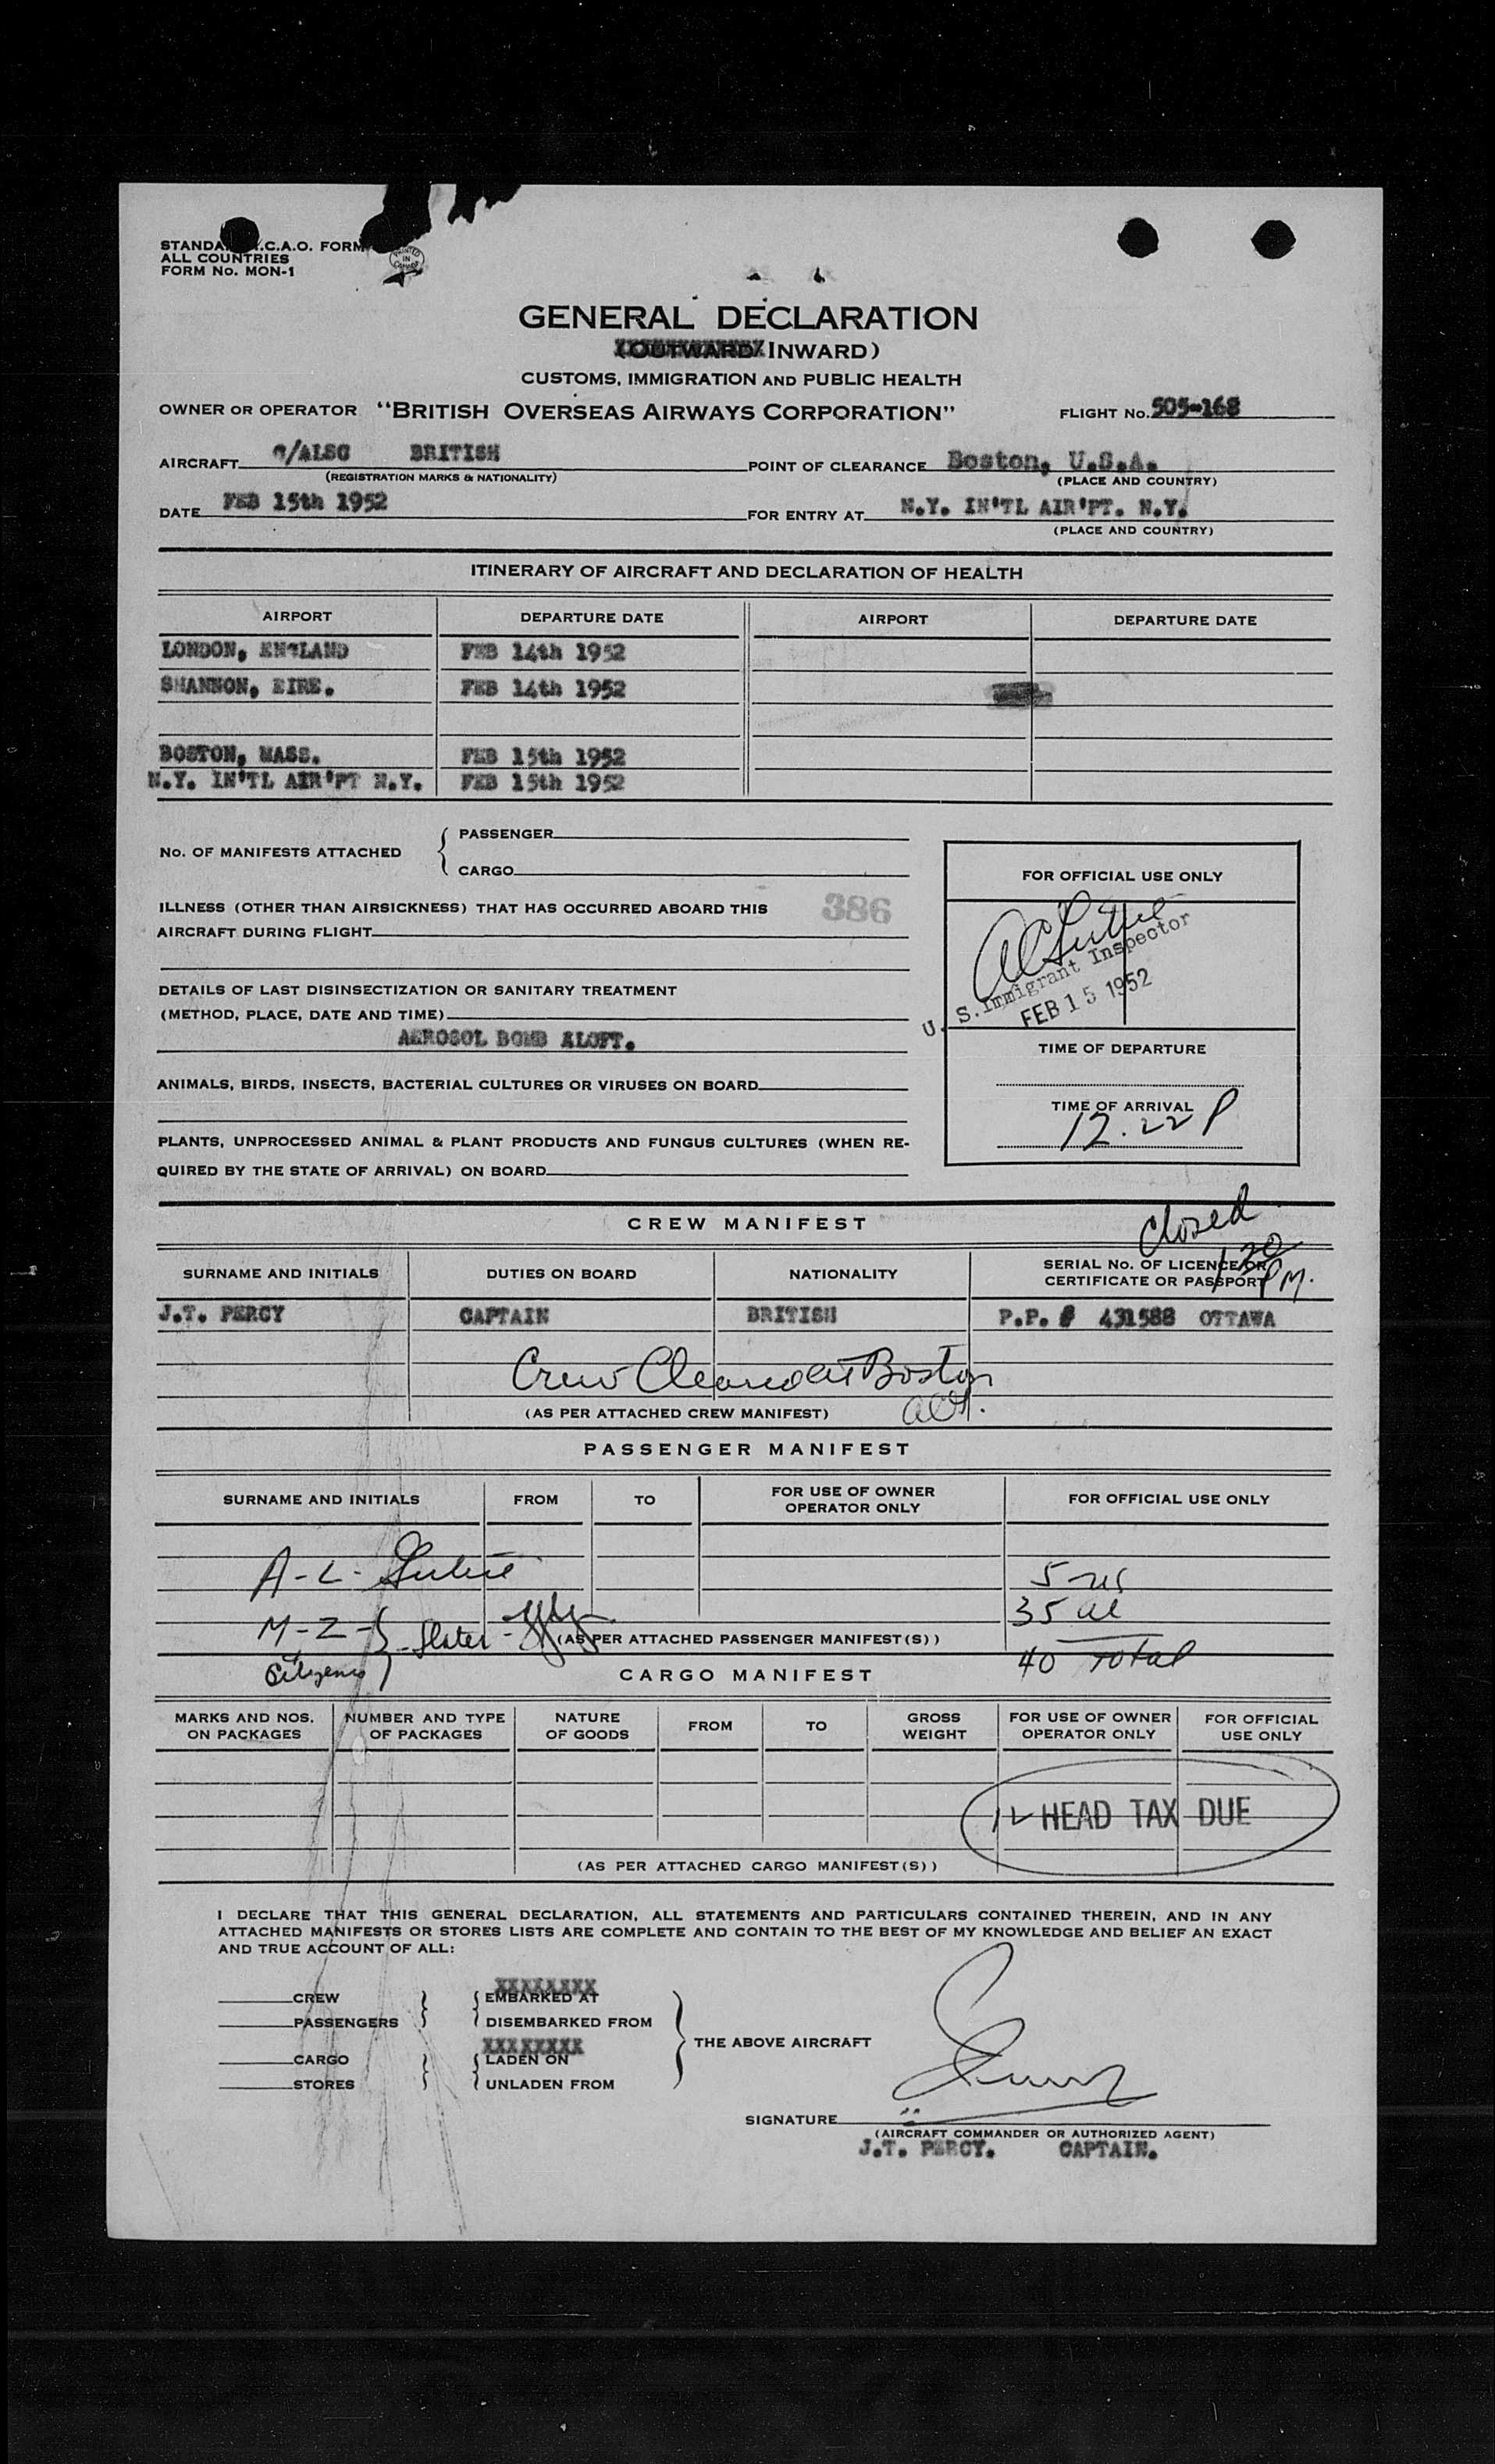 STANDA .C.A.O. FORM
ALL COUNTRIES
FORM No. MON-1
PRINTED IN CANADA
GENERAL DECLARATION
(OUTWARD/INWARD)
CUSTOMS, IMMIGRATION AND PUBLIC HEALTH
OWNER OR OPERATOR "BRITISH OVERSEAS AIRWAYS CORPORATION" FLIGHT No. 505-168
AIRCRAFT G/ALSC BRITISH POINT OF CLEARANCE Boston, U.S.A.
(REGISTRATION MARKS & NATIONALITY) (PLACE AND COUNTRY)
DATE FEB 15th 1952 FOR ENTRY AT N.Y. IN'TL AIR'PT. N.Y.
(PLACE AND COUNTRY)
ITINERARY OF AIRCRAFT AND DECLARATION OF HEALTH
AIRPORT DEPARTURE DATE AIRPORT DEPARTURE DATE
LONDON, ENGLAND FEB 14th 1952
SHANNON, EIRE. FEB 14th 1952
BOSTON, MASS. FEB 15th 1952
N.Y. IN'TL AIR'PT N.Y. FEB 15th 1952
No. OF MANIFESTS ATTACHED { PASSENGER
CARGO
ILLNESS (OTHER THAN AIRSICKNESS) THAT HAS OCCURRED ABOARD THIS 386
AIRCRAFT DURING FLIGHT
DETAILS OF LAST DISINSECTIZATION OR SANITARY TREATMENT
(METHOD, PLACE, DATE AND TIME)
AEROSOL BOMB ALOFT.
ANIMALS, BIRDS, INSECTS, BACTERIAL CULTURES OR VIRUSES ON BOARD
PLANTS, UNPROCESSED ANIMAL & PLANT PRODUCTS AND FUNGUS CULTURES (WHEN RE-
QUIRED BY THE STATE OF ARRIVAL) ON BOARD
FOR OFFICIAL USE ONLY
U. S. Immigrant Inspector
FEB 15 1952
TIME OF DEPARTURE
TIME OF ARRIVAL
12.22 P
Closed
1 30 PM.
CREW MANIFEST
SURNAME AND INITIALS DUTIES ON BOARD NATIONALITY SERIAL No. OF LICENCE OR
CERTIFICATE OR PASSPORT
J.T. PERCY CAPTAIN BRITISH P.P. # 431588 OTTAWA
Crew Cleared at Boston
(AS PER ATTACHED CREW MANIFEST)
PASSENGER MANIFEST
SURNAME AND INITIALS FROM TO FOR USE OF OWNER
OPERATOR ONLY FOR OFFICIAL USE ONLY
A-L- 5 us
M-Z- Slater 35 al
(AS PER ATTACHED PASSENGER MANIFEST(S))
Citizens 40 Total
CARGO MANIFEST
MARKS AND NOS.
ON PACKAGES NUMBER AND TYPE
OF PACKAGES NATURE
OF GOODS FROM TO GROSS
WEIGHT FOR USE OF OWNER
OPERATOR ONLY FOR OFFICIAL
USE ONLY
12 HEAD TAX DUE
(AS PER ATTACHED CARGO MANIFEST(S))
I DECLARE THAT THIS GENERAL DECLARATION, ALL STATEMENTS AND PARTICULARS CONTAINED THEREIN, AND IN ANY
ATTACHED MANIFESTS OR STORES LISTS ARE COMPLETE AND CONTAIN TO THE BEST OF MY KNOWLEDGE AND BELIEF AN EXACT
AND TRUE ACCOUNT OF ALL:
XXXXXXXX
CREW EMBARKED AT
PASSENGERS DISEMBARKED FROM
THE ABOVE AIRCRAFT
XXXXXXXX
CARGO LADEN ON
STORES UNLADEN FROM
SIGNATURE
(AIRCRAFT COMMANDER OR AUTHORIZED AGENT)
J.T. PERCY. CAPTAIN.